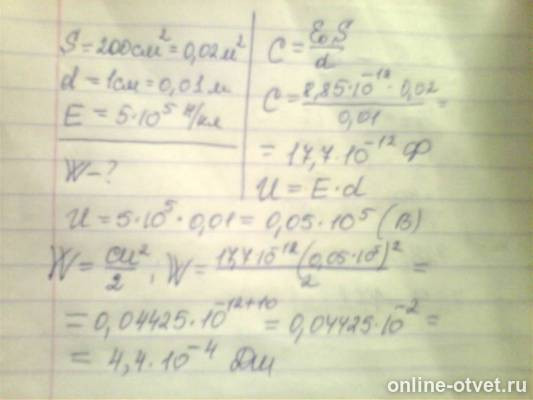 S = 200 см² = 0,02 м²
d = 1 см = 0,01 м
E = 5·10⁵ н/кл
W – ?
C = ε₀S/d
C = 8,85·10⁻¹²·0,02/0,01 =
= 17,7·10⁻¹² Ф
U = E·d
U = 5·10⁵·0,01 = 0,05·10⁵ (В)
W = CU²/2, W = 17,7·10⁻¹²(0,05·10⁵)²/2 =
= 0,04425·10⁻¹²⁺¹⁰ = 0,04425·10⁻² =
= 4,4·10⁻⁴ Дж
online-otvet.ru